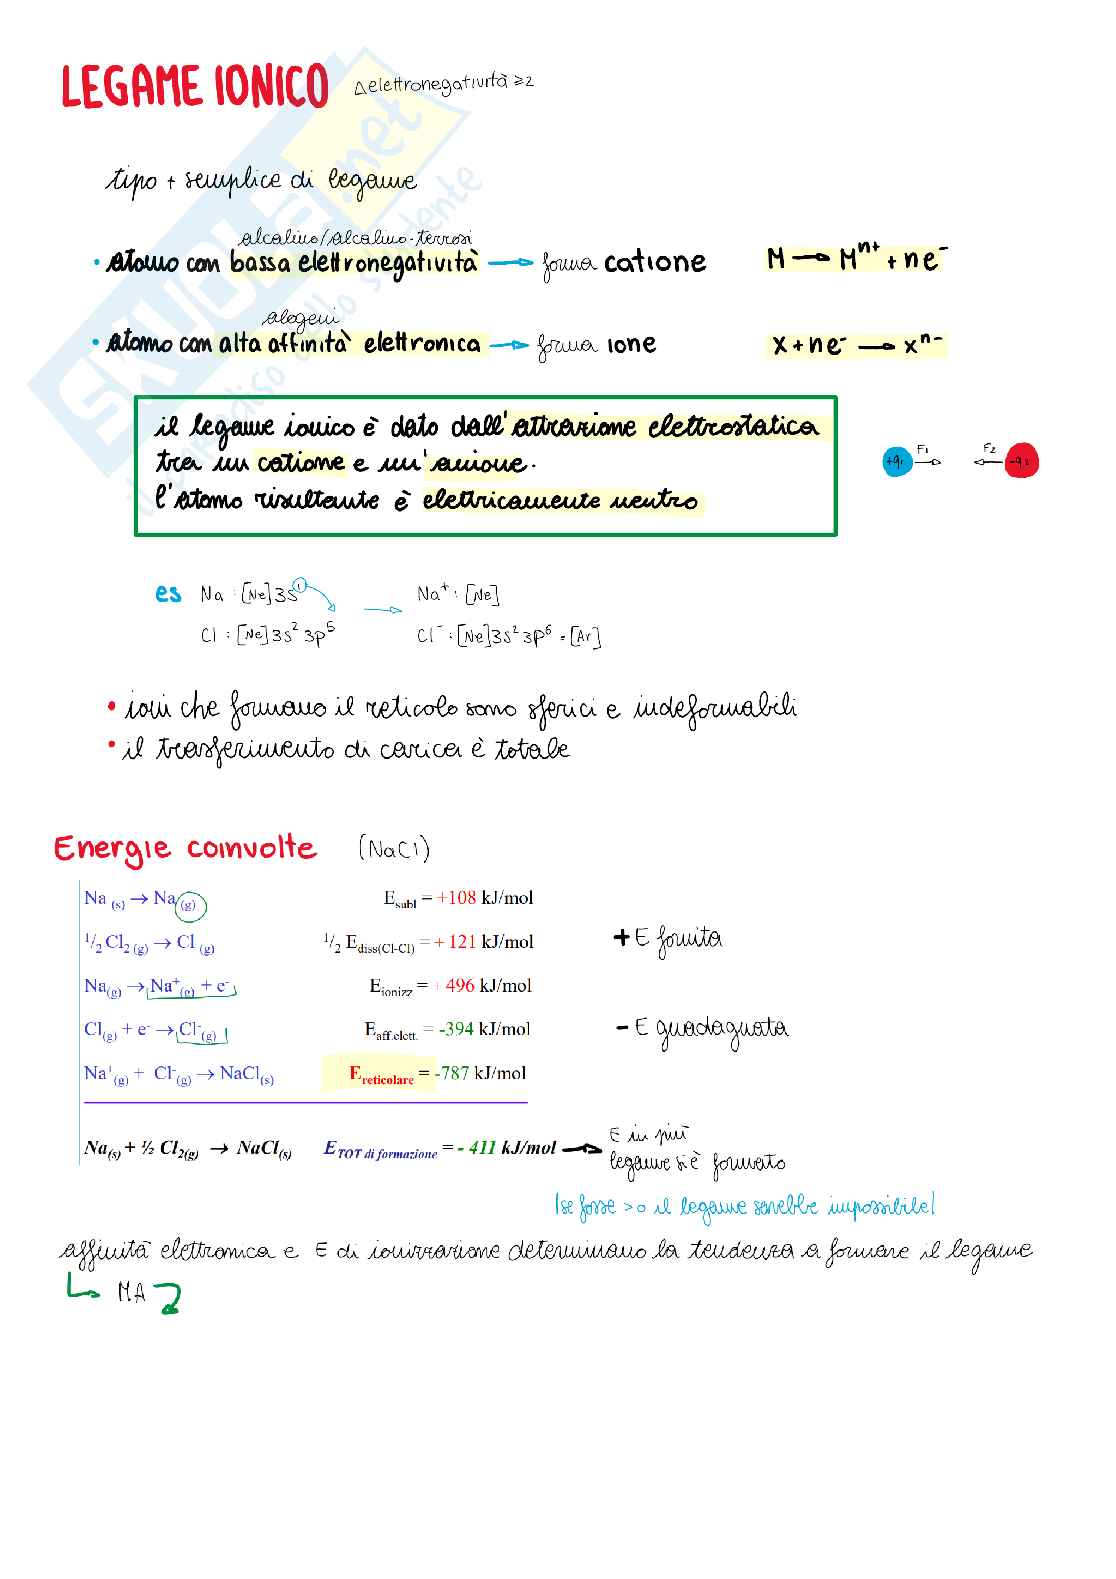 LEGAME IONICO Δelettronegatività ≥2
tipo + semplice di legame
alcalino/alcalino-terrosi
• atomo con bassa elettronegatività → forma catione M → Mⁿ⁺ + ne⁻
alogeni
• atomo con alta affinità elettronica → forma ione X + ne⁻ → xⁿ⁻
il legame ionico è dato dall'attrazione elettrostatica
tra un catione e un'anione.
l'atomo risultante è elettricamente neutro
F₁ F₂
+q₁ -q₂
es Na : [Ne]3s¹ → Na⁺ : [Ne]
Cl : [Ne]3s² 3p⁵ Cl⁻ : [Ne]3s² 3p⁶ = [Ar]
• ioni che formano il reticolo sono sferici e indeformabili
• il trasferimento di carica è totale
Energie coinvolte (NaCl)
Na (s) → Na (g) E subl = +108 kJ/mol
1/2 Cl2 (g) → Cl (g) 1/2 E diss(Cl-Cl) = + 121 kJ/mol
+ E fornita
Na(g) → Na⁺(g) + e⁻ E ionizz = + 496 kJ/mol
Cl(g) + e⁻ → Cl⁻(g) E aff.elett. = -394 kJ/mol
- E guadagnata
Na⁺(g) + Cl⁻(g) → NaCl(s) E reticolare = -787 kJ/mol
Na(s) + ½ Cl2(g) → NaCl(s) E TOT di formazione = - 411 kJ/mol → E in più
legame si è formato
(se fosse >0 il legame sarebbe impossibile)
affinità elettronica e E di ionizzazione determinano la tendenza a formare il legame
MA
SKUOLA.net
il paradiso dello studente